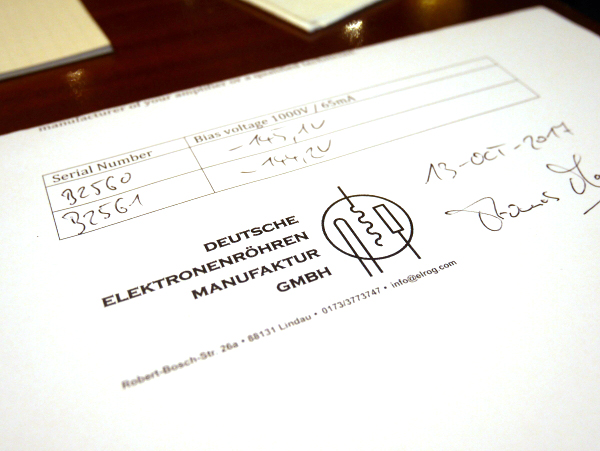 manufacturer of your amplifier or a qualified
Serial Number Bias voltage 1000V / 65mA
B2560 -145,1V
B2561 -144,2V
13-OCT-2017
DEUTSCHE
ELEKTRONENRÖHREN
MANUFAKTUR
GMBH
Robert-Bosch-Str. 26a • 88131 Lindau • 0173/3773747 • info@elrog.com